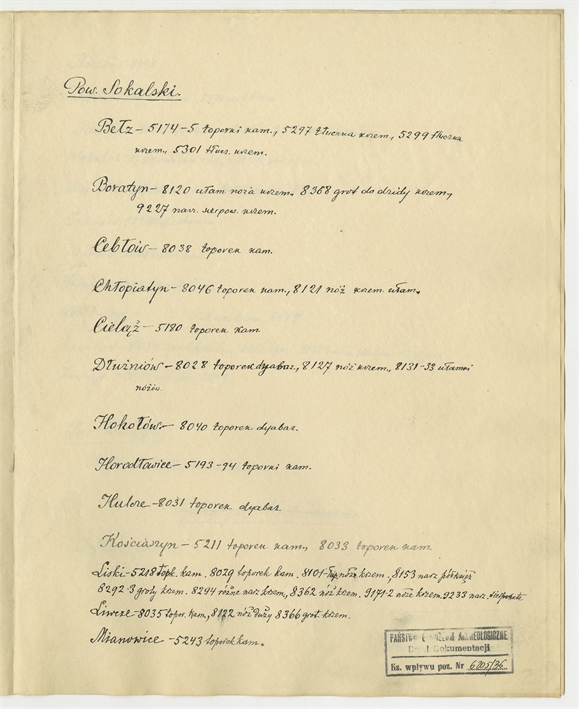 Pow. Sokalski.
Bełz – 5174–5 toporki kam., 5297 tłuczka krzem., 5299 tłuczka
krzem., 5301 tłucz. krzem.
Poratyn – 8120 ułam. noża krzem., 8368 grot do dzidy krzem.,
9227 narz. krzem.
Cebłów – 8038 toporek kam.
Chłopiatyn – 8046 toporek kam., 8121 nóż krzem. ułam.
Cieląż – 5180 toporek kam.
Dłużniów – 8028 toporek dyabaz., 8127 nóż krzem., 8131–33 ułamki
nożów.
Hokołów – 8040 toporek dyabaz.
Horodłowice – 5193–94 toporki kam.
Hulcze – 8031 toporek dyabaz.
Kościaszyn – 5211 toporek kam., 8033 toporek kam.
Liski – 5218 topk. kam. 8029 toporek kam. 8101 nóż krzem., 8153 narz. półksięż.
8292–3 groty krzem. 8294 różne narz. krzem., 8362 nóż krzem. 9171–2 noże krzem. 9233 narz.
Liwcze – 8035 topor. kam., 8122 nóż duży 8366 grot. krzem.
Mianowice – 5243 toporek kam.
PAŃSTW. MUZEUM ARCHEOLOGICZNE
Dział Dokumentacji
Ks. wpływu poz. Nr 6205/36